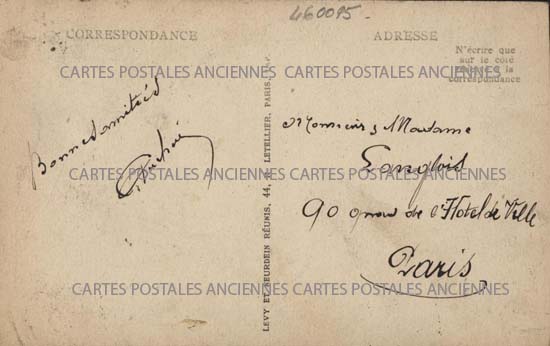 460095
CORRESPONDANCE
ADRESSE
N'écrire que
sur le côté
à la
correspondance
CARTES POSTALES ANCIENNES CARTES POSTALES ANCIENNES
Bonnes amitiés
Monsieur & Madame
Langlois
CARTES POSTALES ANCIENNES CARTES POSTALES ANCIENNES
90 quai de l'Hotel de Ville
Paris
CARTES POSTALES ANCIENNES CARTES POSTALES ANCIENNES
LEVY ET NEURDEIN RÉUNIS, 44, R. LETELLIER, PARIS